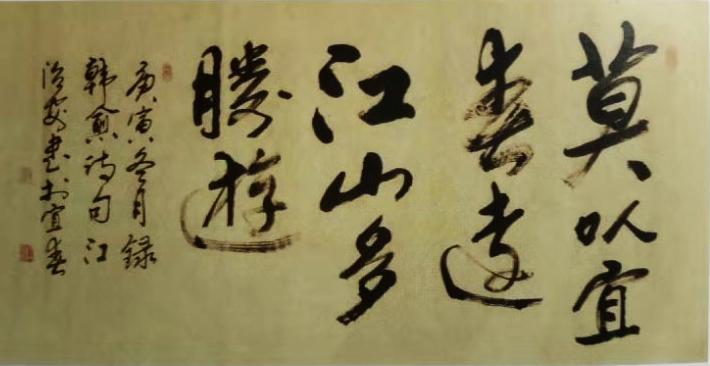 莫以宜
春遠
江山多
勝遊
庚寅冬月録
韓愈詩句江
安書於宜春